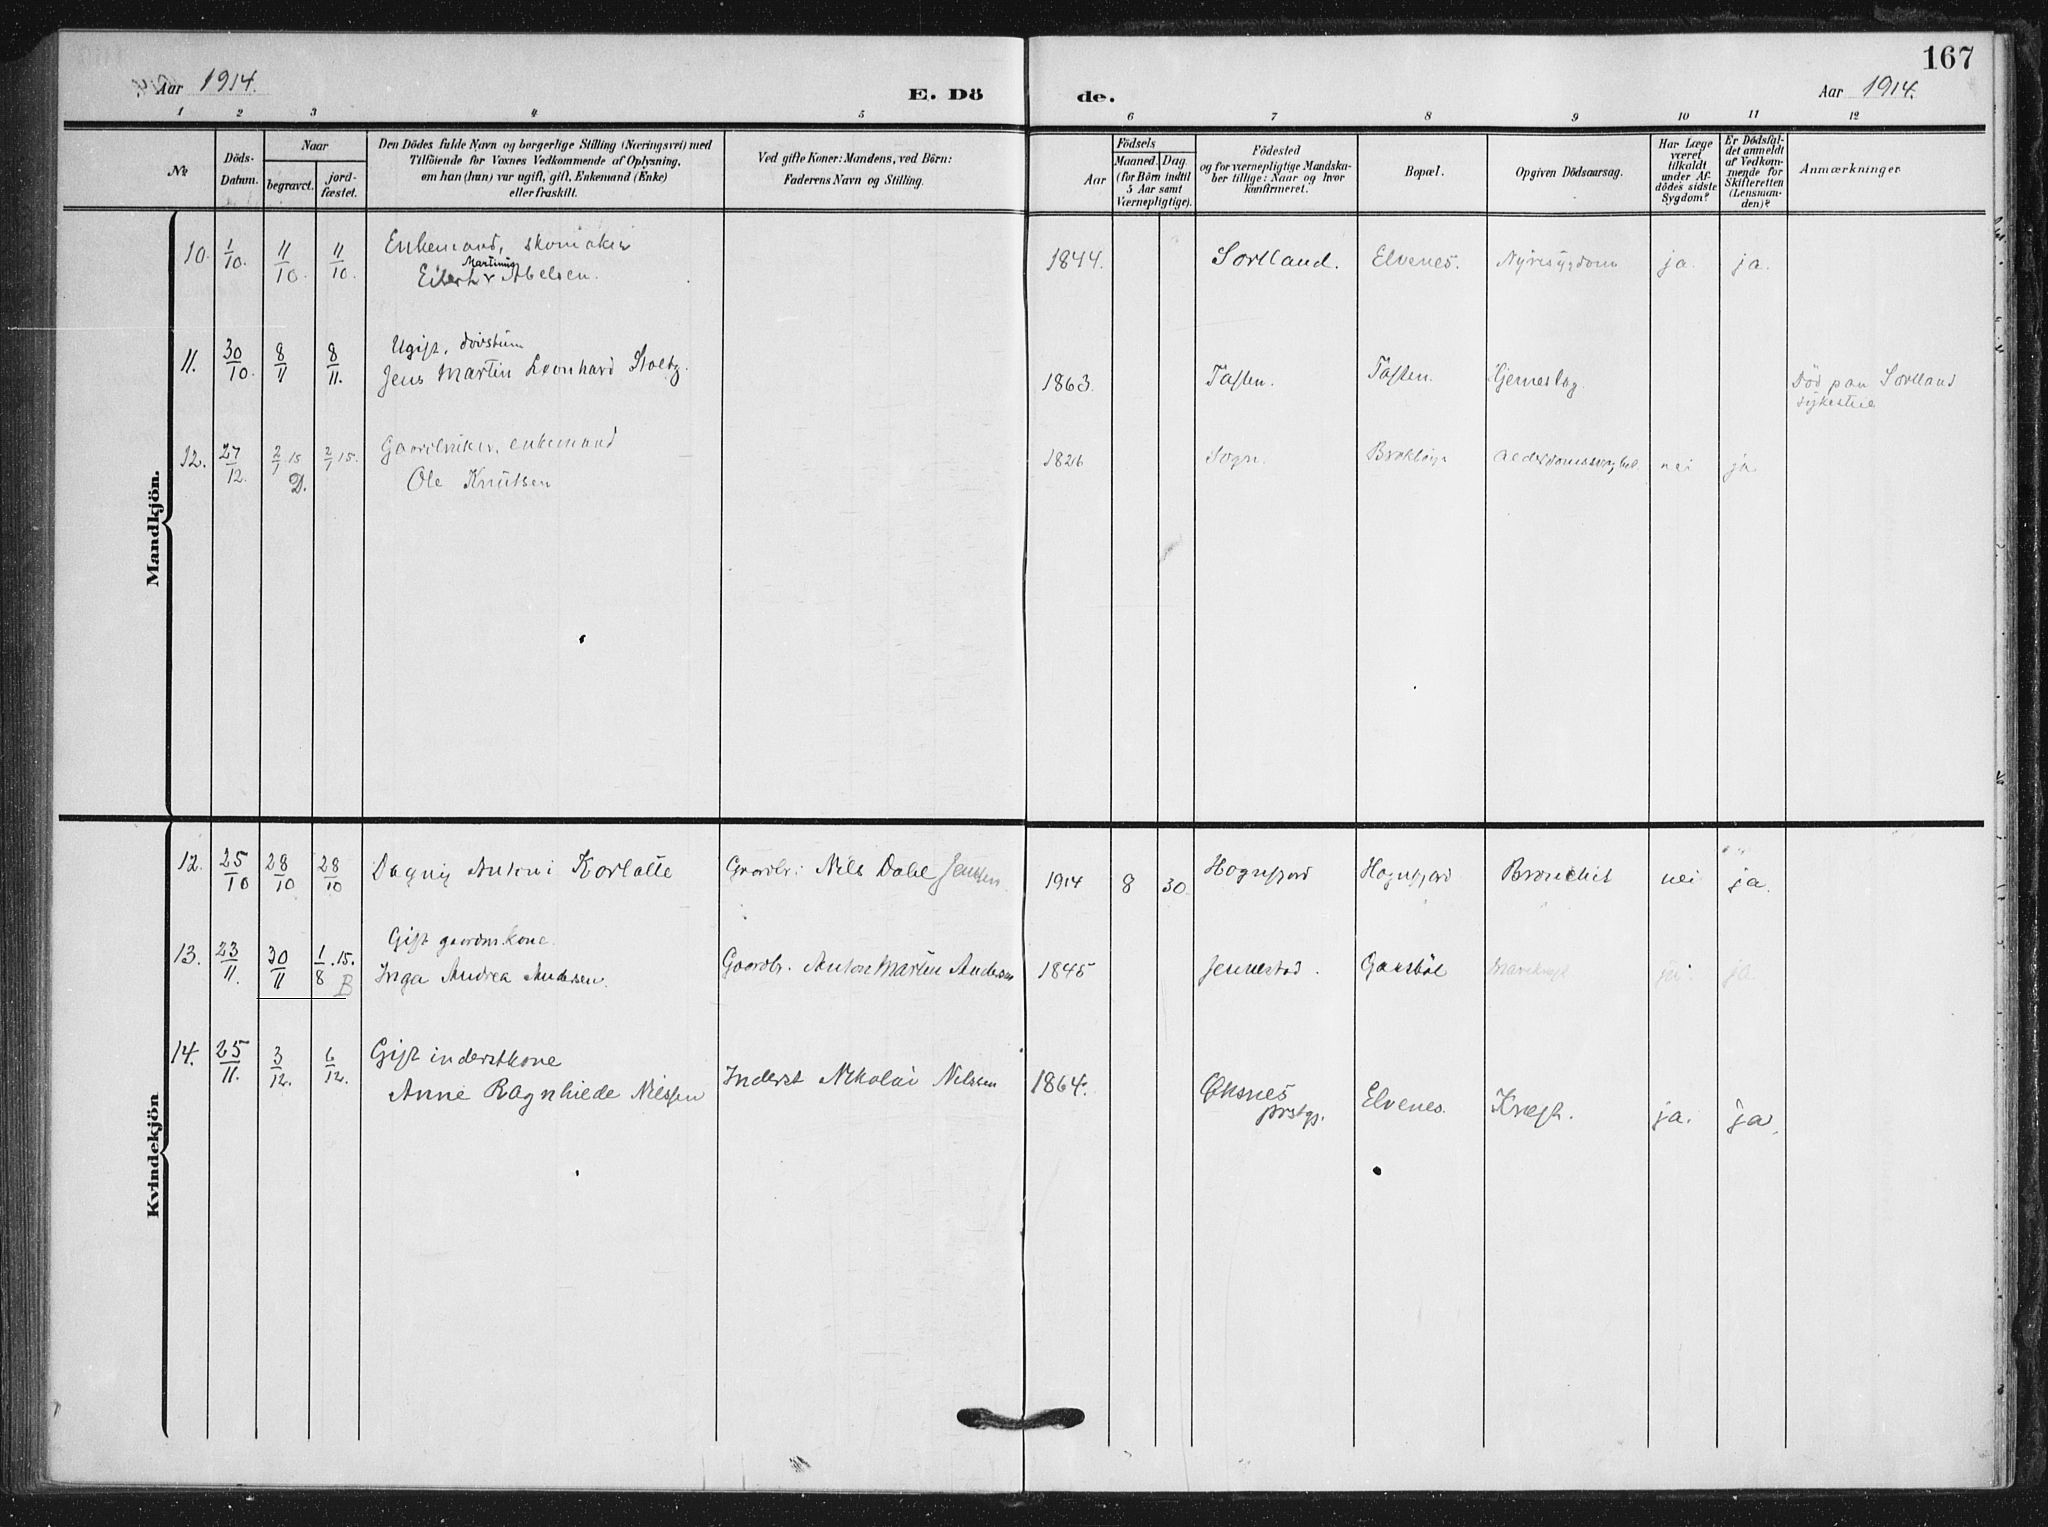 167
Aar 1914.
E. Dö
de.
Aar 1914.
1 2 3 4 5 6 7 8 9 10 11 12
№
Döds-
Datum.
Naar
begravet.
jord-
fæstet.
Den Dödes fulde Navn og borgerlige Stilling (Næringsvei) med
Tilföiende for Voxnes Vedkommende af Oplysning,
om han (hun) var ugift, gift, Enkemand (Enke)
eller fraskilt.
Ved gifte Koner: Mandens, ved Börn:
Faderens Navn og Stilling.
Födsels
Aar
Maaned. Dag
(for Börn indtil
5 Aar samt
Værnepligtige).
Födested
og for værnepligtige Mandska-
ber tillige: Naar og hvor
konfirmeret.
Bopæl.
Opgiven Dödsaarsag.
Har Læge
været
tilkaldt
under Af-
dödes sidste
Sygdom?
Er Dödsfal-
det anmeldt
af Vedkom-
mende for
Skifteretten
(Lensman-
den)?
Anmærkninger
Mandkjön.
10. 1/10 11/10 11/10 Enkemand, skomaker
Martinus
Eilert v Abelsen. 1844. Sortland. Elvenes. Nyresygdom ja. ja.
11. 30/10. 8/11 8/11. Ugift, døvstum
Jens Martin Leonhard Stoltz. 1863. Tasten. Tasten. Hjerneslag Død paa Sortland
sykestue
12. 27/12. 2/1 15 2/1 15. Gaardbruker, enkemand
D. Ole Knutsen 1826 Sogn. Alderdomssvaghet. nei ja
Kvindekjön
12. 25/10 28/10 28/10 Dagny Antoni Kartotte Gaardbr. Nils Dahl Jensen. 1914 8 30. Hognfjord Hognfjord Bronchit nei ja.
13. 23/11. 30/11 1/8.15. Gift gaardmkone.
B Inga Andrea Andersen. Gaardbr. Anton Martin Andersen 1845 Jennestad. ja
14. 25/11. 3/12. 6/12. Gift inderstkone
Anne Ragnhilde Nilssen Inderst Nikolai Nilssen 1864. Øksnes
prstgj. Elvenes. Kræft. ja. ja.